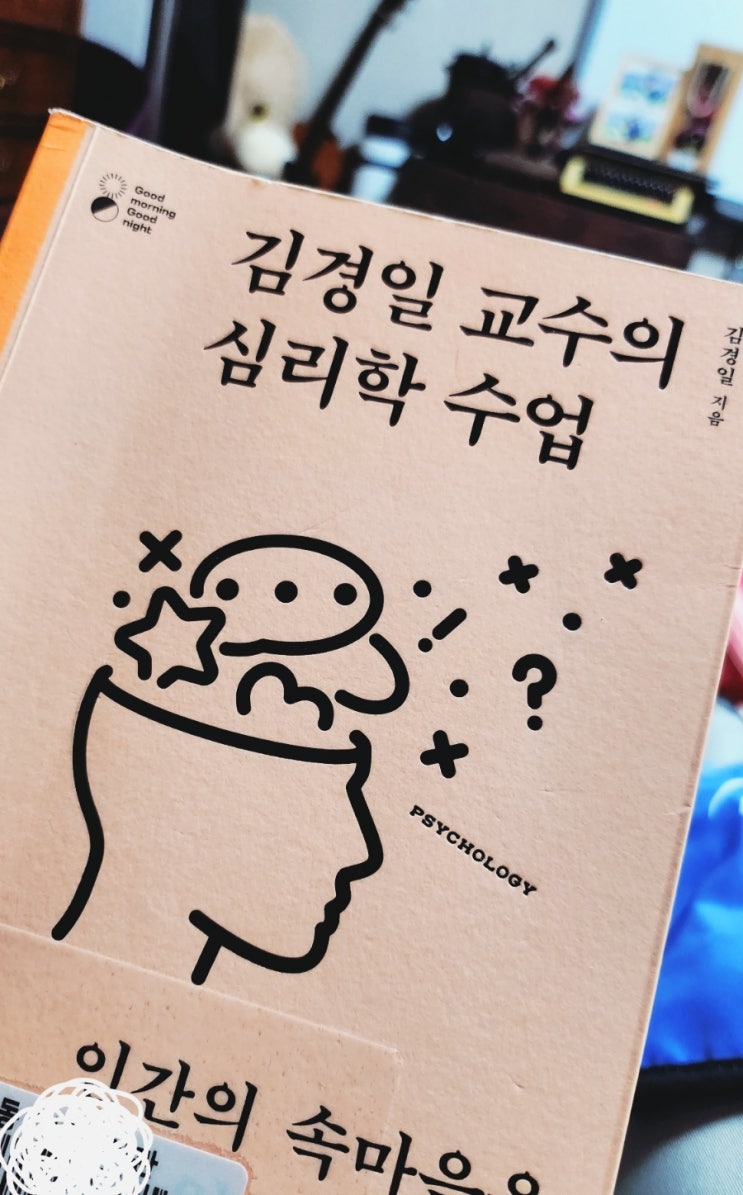 Good
morning
Good
night
김경일 교수의
심리학 수업
김경일 지음
PSYCHOLOGY
속마음을